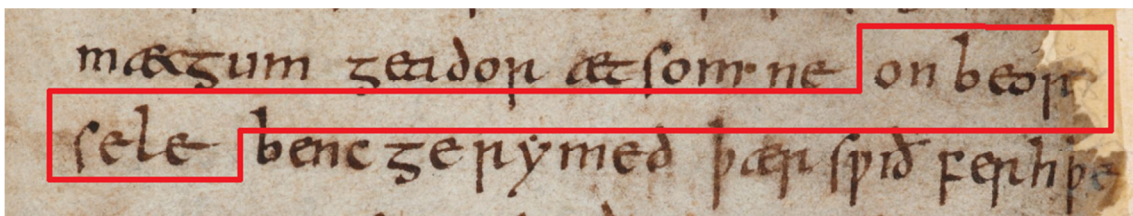 mægum geador ætsomne on beor
sele benc gerymed þær swið ferhþe